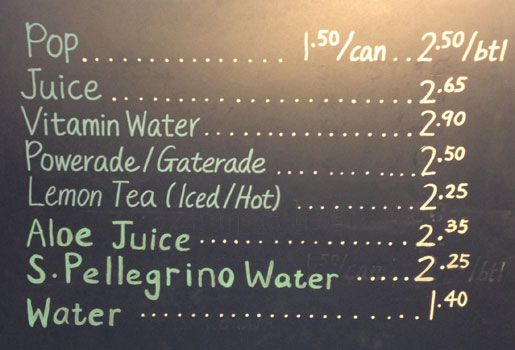 Pop................ 1.50/can .. 2.50/btl
Juice ......................... 2.65
Vitamin Water................. 2.90
Powerade/Gaterade ............ 2.50
Lemon Tea (Iced/Hot) ......... 2.25
Aloe Juice ................... 2.35
S.Pellegrino Water ..... 2.25
Water ....................... 1.40